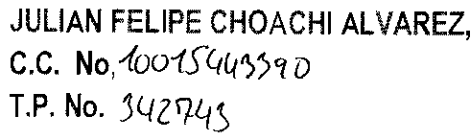 JULIAN FELIPE CHOACHI ALVAREZ,
C.C. No. 10015443390
T.P. No. 342743